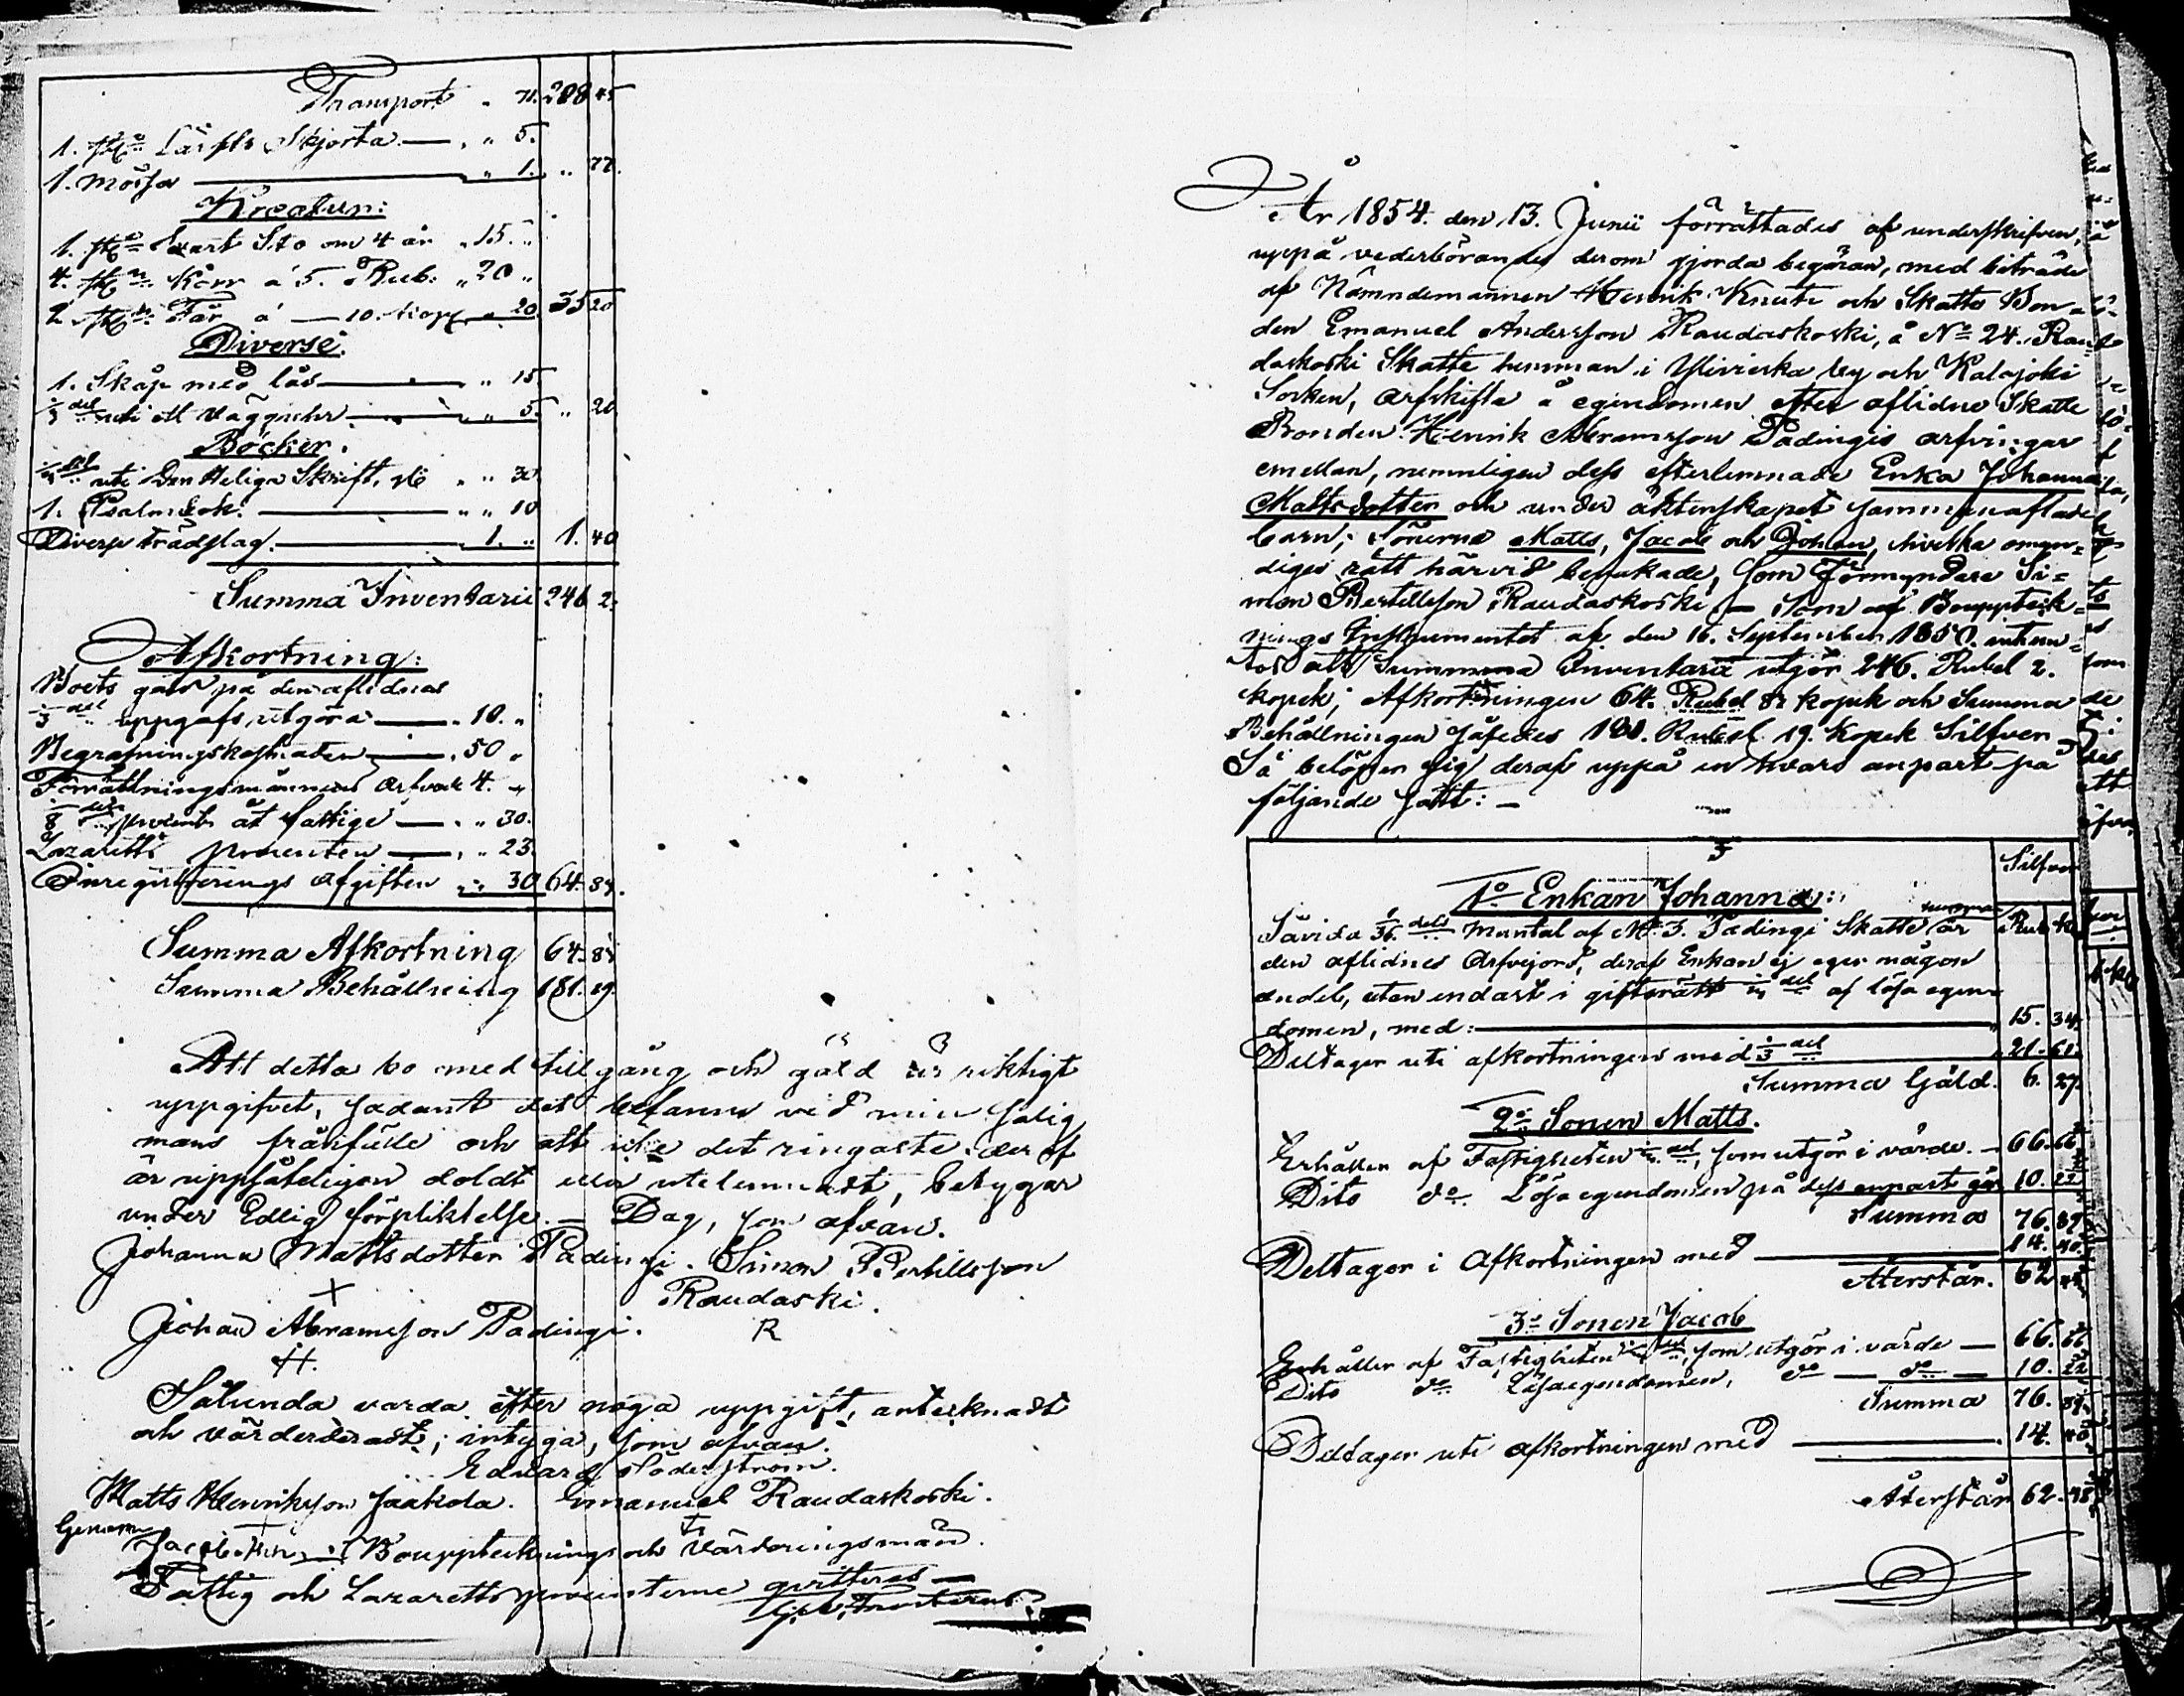 Transport " 71. 208 45
1. st. Lärfts Skjorta — " " 5.
1. Mössa — " 1. " 77.
Kreatur:
1. st. Svart Sto om 4 år " 15. "
4. st. Kor á 5. Rub: " 20 "
2. st. Får á — 10. kop " 20. 35 20
Diverse.
1. Skåp med lås — " 15
1/3 del uti ett Vägguhr — " 5. " 20
Böcker.
uti Den Heliga Skrift, " " 30
1. Psalmbok. — " " 10
Diverse trädslag. — 1. " 1. 40
Summa Inventarii 246 2.
Afkortning:
Boets gäld på den aflidnas
1/3 del uppgafs utgöra — " 10. "
Begrafningskostnaden — " 50 "
Förrättningsmännens Arfvode 4. "
1/8 dels procent åt fattige — " " 30.
Lazaretts procenten — " " 23.
Inregistrerings afgiften " " 30 64. 83.
Summa Afkortning 64. 83
Summa Behållning 181. 19.
Att detta bo med tillgång och gäld är riktigt
uppgifvet, sådant det befanns vid min salig
mans frånfälle och att icke det ringaste deraf
är uppsåteligen doldt eller utelemnadt, betygar
under Edlig förpliktelse. — Dag, som ofvan.
Johanna Mattsdotter Padingi. Simon Bertillsson
Raudaski.
Johan Abramsson Padingi. R
Sålunda varda efter noga uppgift, antecknadt
och värderadt; intyga, som ofvan.
Edvard Söderström.
Matts Henriksson Jaakola. Emanuel Raudaskoski.
Genom Jacob Bouppteknings och Värderingsmän.
Fattig och Lazaretts procenterne qvitteras —
År 1854. den 13. Junii förrättades af underskrifven,
uppå vederbörandes derom gjorda begäran, med biträde
af Nämndemannen Henrik Knuti och Skatte Bon-
den Emanuel Andersson Raudaskoski, å No 24. Rau-
daskoski Skatte hemman i Ylivieska by och Kalajoki
Socken, arfskifte å egendomen efter aflidne Skatte
Bonden Henrik Abramsson Padingis arfvingar
emellan, nemmligen dess efterlemnade Enka Johanna
Mattsdotter och under äktenskapet sammanaflade
barn; Sönerne Matts, Jacob och Johan, hvilka omyn-
diges rätt härvid bevakade, som Förmyndare Si=
mon Bertillsson Raudaskoski, — Som af Bouppteck=
nings Instrumentet af den 16. September 1850. inhem=
tas att Summa Inventarii utgör 246. Rubel 2.
kopek; Afkortningen 64. Rubel 83 kopek och Summa
Behållningen således 181. Rubel 19. Kopek Silfver
Så belöper sig deraf uppå en hvars anpart på
följande sätt: —
Silfver
1o Enkan Johanna: Rub. K.
Såvida 1/36 dels Mantal af No 3. Padingi Skatte hemman är
den aflidnes Arfvejord, deraf Enkan ej eger någon
andel, utan endast i giftorätt 1/3 del af lösa egen=
domen, med: — 15. 34.
Deltager uti afkortningen med 1/3 del — 21. 61.
Summa Gäld. 6. 27.
2o Sonen Matts.
Erhåller af Fastigheten 1/3 del, som utgör i värde. — 66. 66
Dito do Lösa egendomen på dess anpart gör 10. 22
Summa 76. 89
Deltager i Afkortningen med — 14. 40.
Återstår. 62 48
3o Sonen Jacob
Erhåller af Fastigheten 1/3 del, som utgör i värde — 66. 66
Dito do Lösaegendomen, do — do — 10. 22
Summa 76. 89.
Deltager uti afkortningen med — 14. 40
Återstår 62. 48